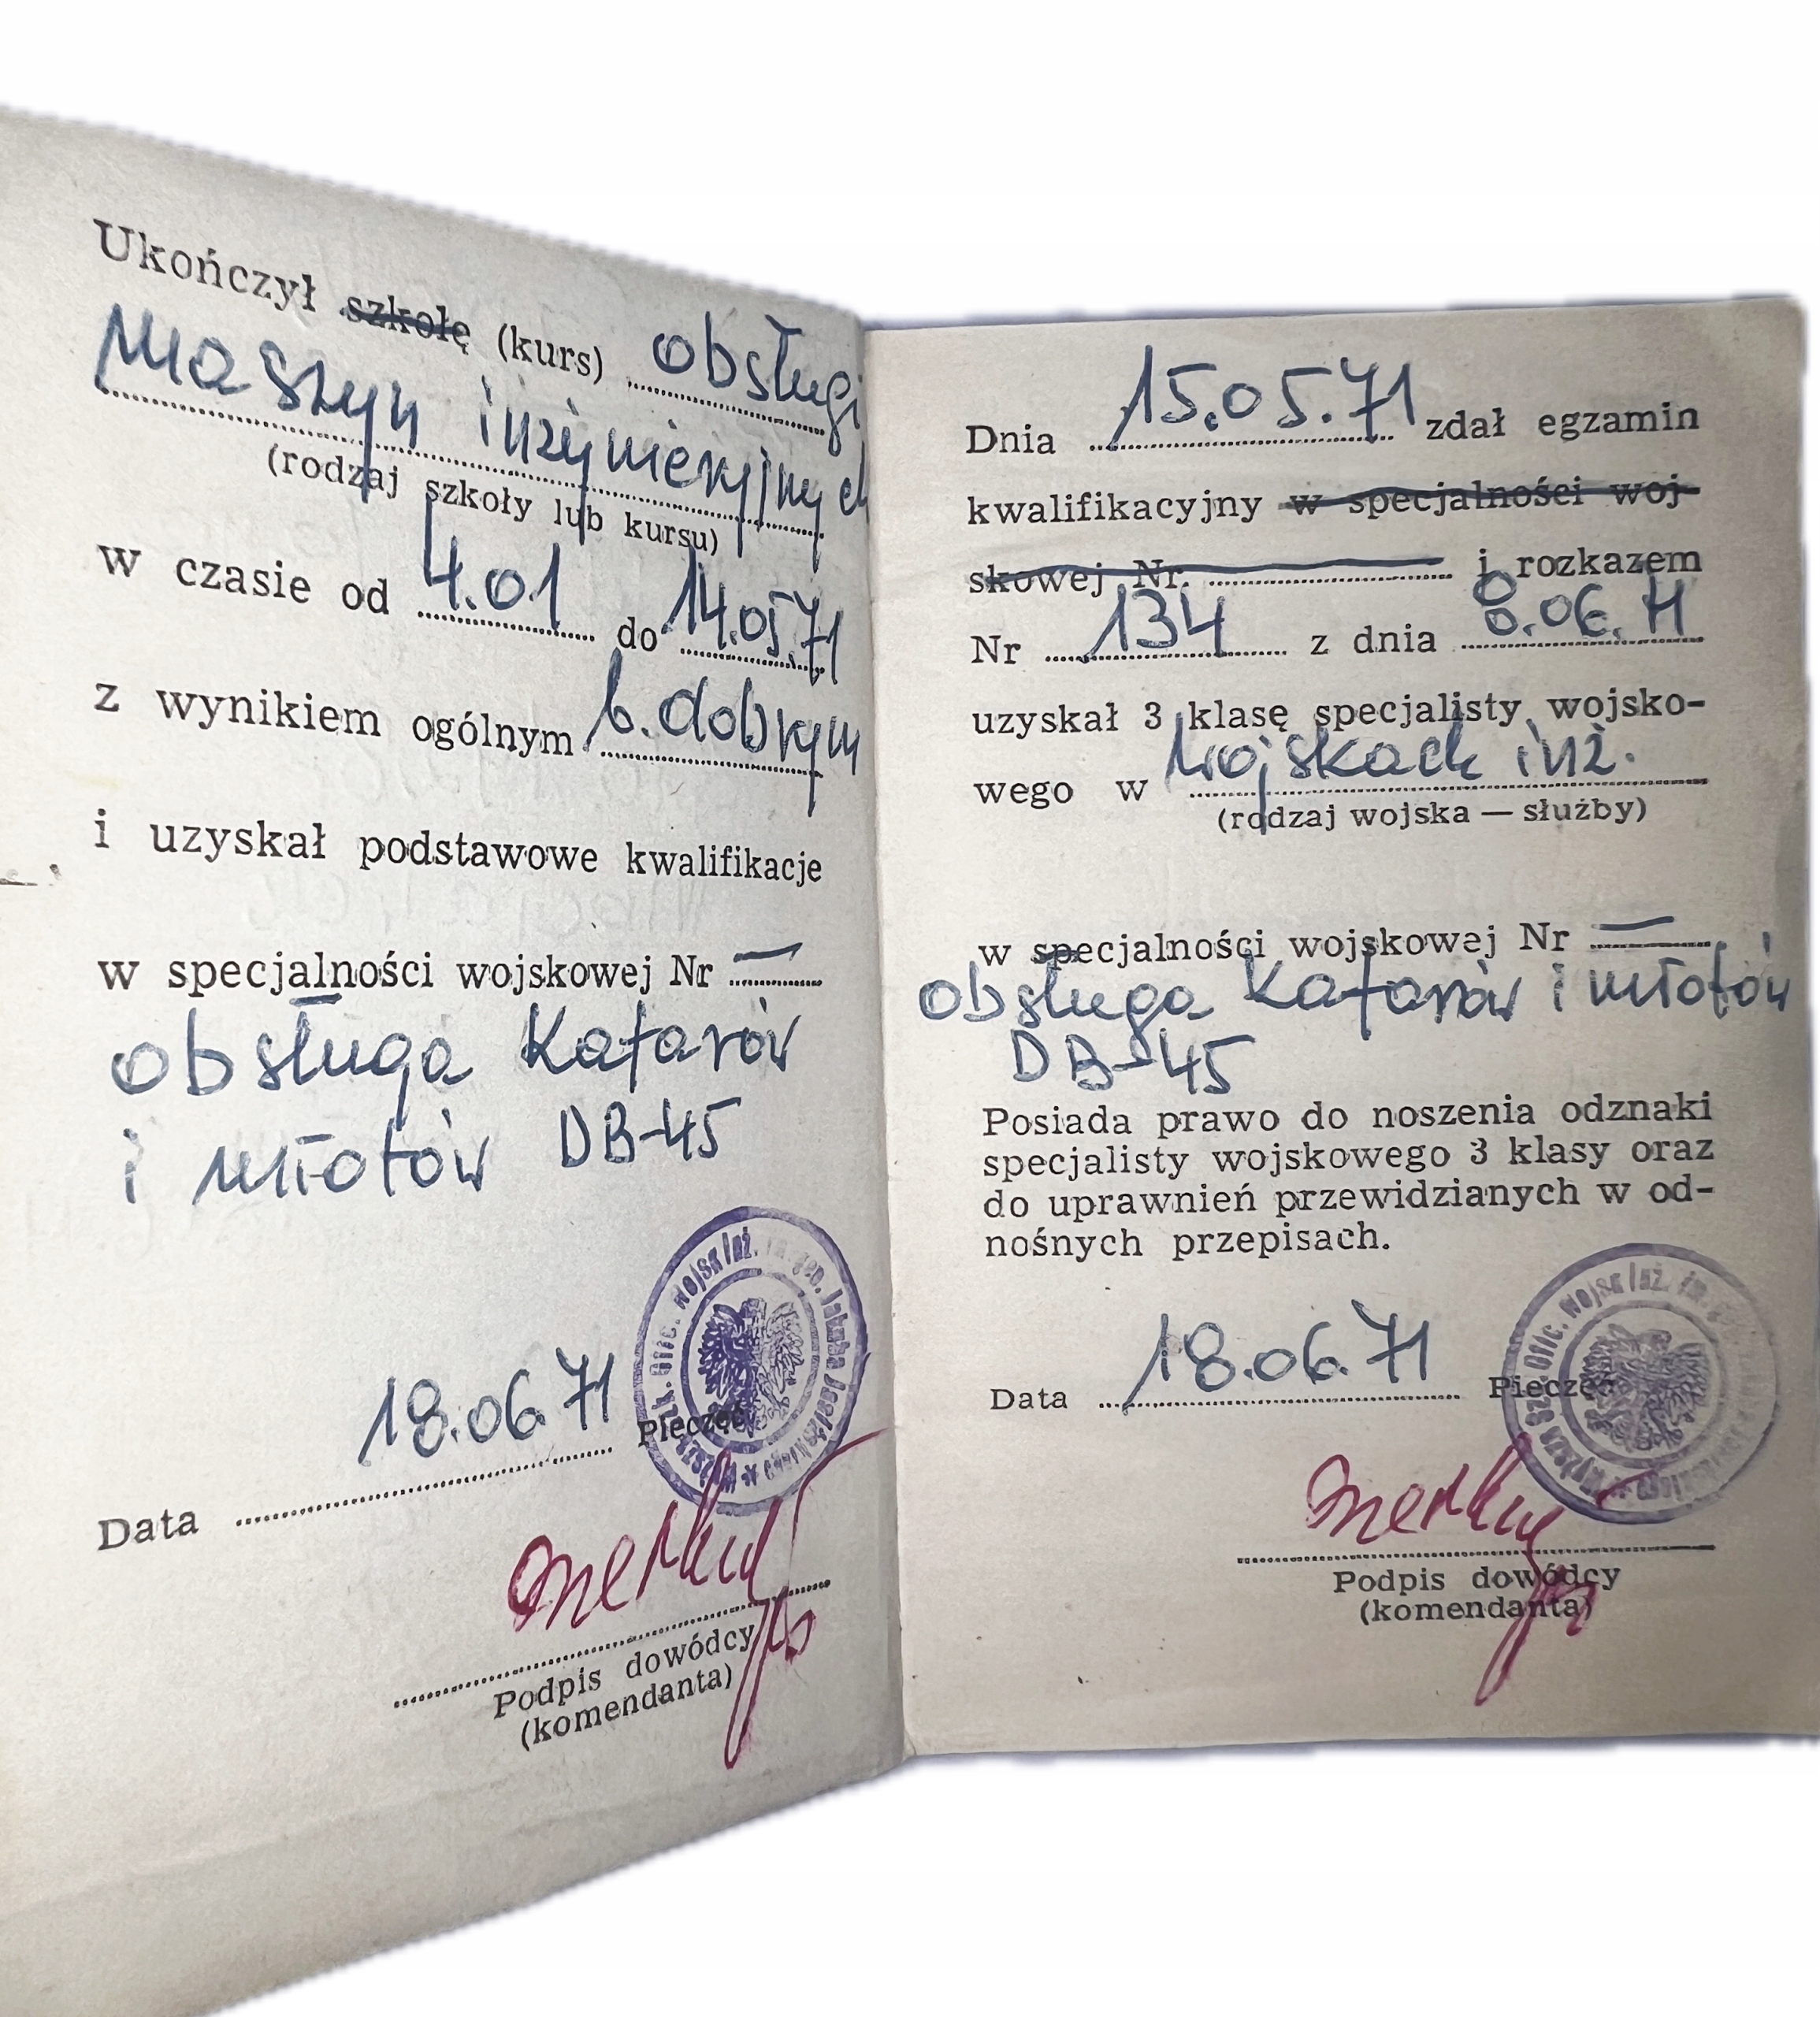 Ukończył szkołę (kurs) obsługi
maszyn inżynieryjnych
(rodzaj szkoły lub kursu)
w czasie od 4.01 do 14.05.71
z wynikiem ogólnym b. dobrym
i uzyskał podstawowe kwalifikacje
w specjalności wojskowej Nr —
obsługa Kafarów
i młotów DB-45
18.06.71
Data Pieczęć
Wyższa Szk. Ofic. Wojsk Inż. im. gen. Jakuba Jasińskiego
Podpis dowódcy
(komendanta)
Dnia 15.05.71 zdał egzamin
kwalifikacyjny w specjalności woj-
skowej Nr. i rozkazem
Nr 134 z dnia 8.06.71
uzyskał 3 klasę specjalisty wojsko-
wego w wojskach inż.
(rodzaj wojska — służby)
w specjalności wojskowej Nr —
obsługa Kafarów i młotów
DB-45
Posiada prawo do noszenia odznaki
specjalisty wojskowego 3 klasy oraz
do uprawnień przewidzianych w od-
nośnych przepisach.
Data 18.06.71 Pieczęć
Wyższa Szk. Ofic. Wojsk Inż. im.
Podpis dowódcy
(komendanta)